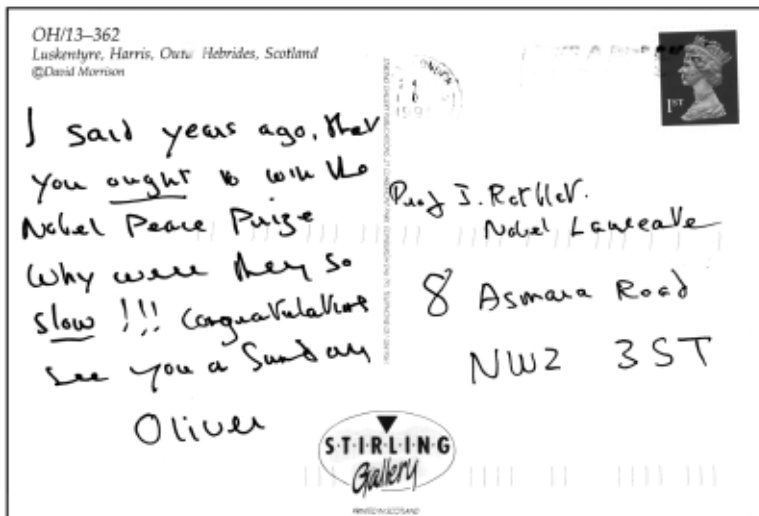 OH/13–362
Luskentyre, Harris, Oute Hebrides, Scotland
©David Morrison
I said years ago, that
you ought to win the
Nobel Peace Prize
Why were they so
slow !!! Congratulations
See you a Sunday
Oliver
1ST
Prof J. Rotblat.
Nobel Laureate
8 Asmara Road
NW2 3ST
S·T·I·R·L·I·N·G
Gallery
PRINTED IN SCOTLAND